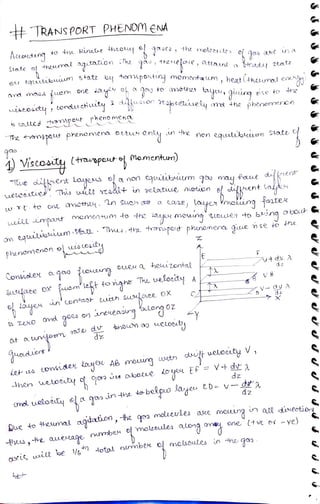 # TRANSPORT PHENOMENA
According to the Kinetic theory of gases, the molecules of gas are in a
state of thermal agitation. The gas, therefore, attains a steady state
or equilibrium state by transporting momentum, heat (thermal energy)
and mass from one layer of a gas to another layer, giving rise to the
viscosity, conductivity & diffusion respectively and the phenomenon
is called transport phenomena
The transport phenomena occurs only in the non equilibrium state of
gas
1) Viscosity (transport of Momentum)
The different layers of a non equilibrium gas may have different
velocities. This will result in relative motion of different layers
w.r.t to one another. In such a case, layer moving faster
will impart momentum to the layer moving slower to bring about
an equilibrium state. Thus, the transport phenomena give rise to the
phenomenon of viscosity
Consider a gas flowing over a horizontal
surface OX from left to right. The velocity
of layer in contact with surface OX
is zero and goes on increasing along OZ
at a uniform rate dv/dz known as velocity
gradient
Let us consider layer AB moving with drift velocity V,
then velocity of gas in above layer EF = V + dv/dz λ
and velocity of a gas in the below layer CD = V - dv/dz λ
Due to thermal agitation, the gas molecules are moving in all direction
thus, the average number of molecules along any one (+ve or -ve)
axis will be 1/6th total number of molecules in the gas.
Let